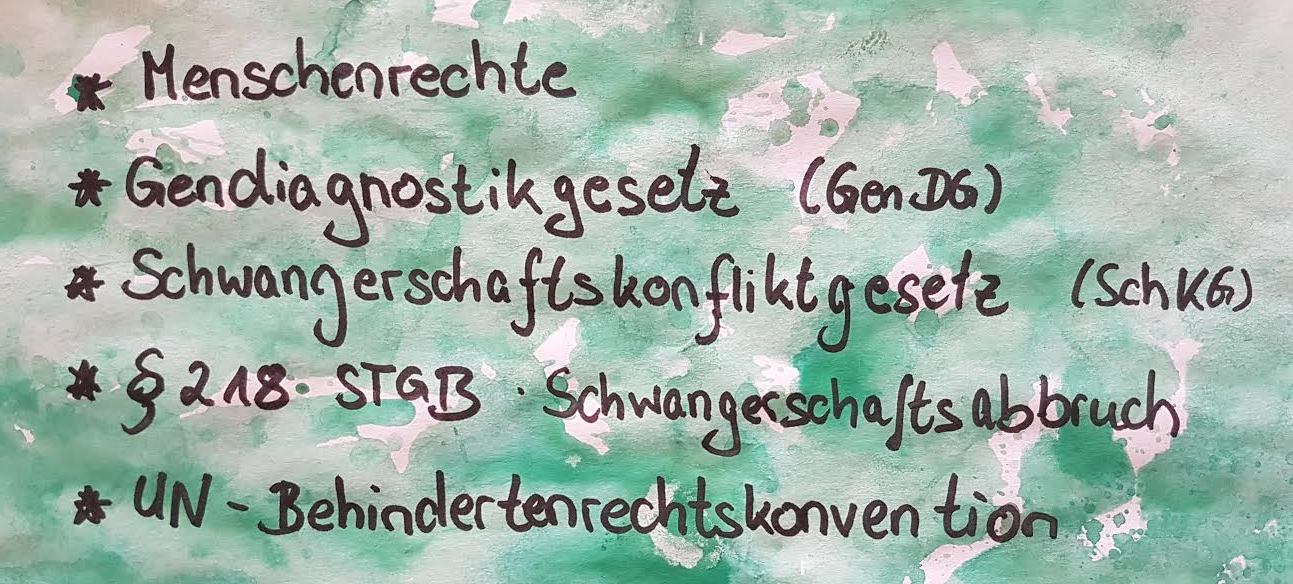 * Menschenrechte
* Gendiagnostikgesetz (GenDG)
* Schwangerschaftskonfliktgesetz (SchKG)
* § 218 · STGB · Schwangerschaftsabbruch
* UN - Behindertenrechtskonvention